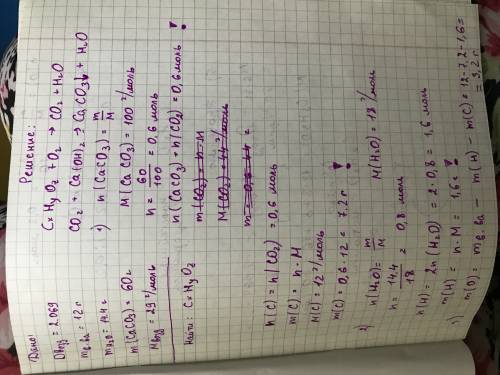 Дано:
Dвозд = 2.069
mв.ва = 12 г
mH₂O = 14.4 г
m(CaCO₃) = 60 г
Mвозд = 29 г/моль
Найти: CxHyOz
Решение:
CxHyOz + O₂ → CO₂ + H₂O
CO₂ + Ca(OH)₂ → CaCO₃↓ + H₂O
1) n(CaCO₃) = m/M
M(CaCO₃) = 100 г/моль
n = 60/100 = 0,6 моль
n(CaCO₃) = n(CO₂) = 0,6 моль !
m(CO₂) = n·M
M(CO₂) = 44 г/моль
m = 0,6·44 =
n(C) = n(CO₂) = 0,6 моль
m(C) = n·M
M(C) = 12 г/моль
m(C) = 0,6·12 = 7,2 г !
2) n(H₂O) = m/M M(H₂O) = 18 г/моль
n = 14.4/18 = 0,8 моль
n(H) = 2n(H₂O) = 2·0,8 = 1,6 моль
m(H) = n·M = 1,6 г !
3) m(O) = mв.ва - m(H) - m(C) = 12-7,2-1,6 =
= 3,2 г